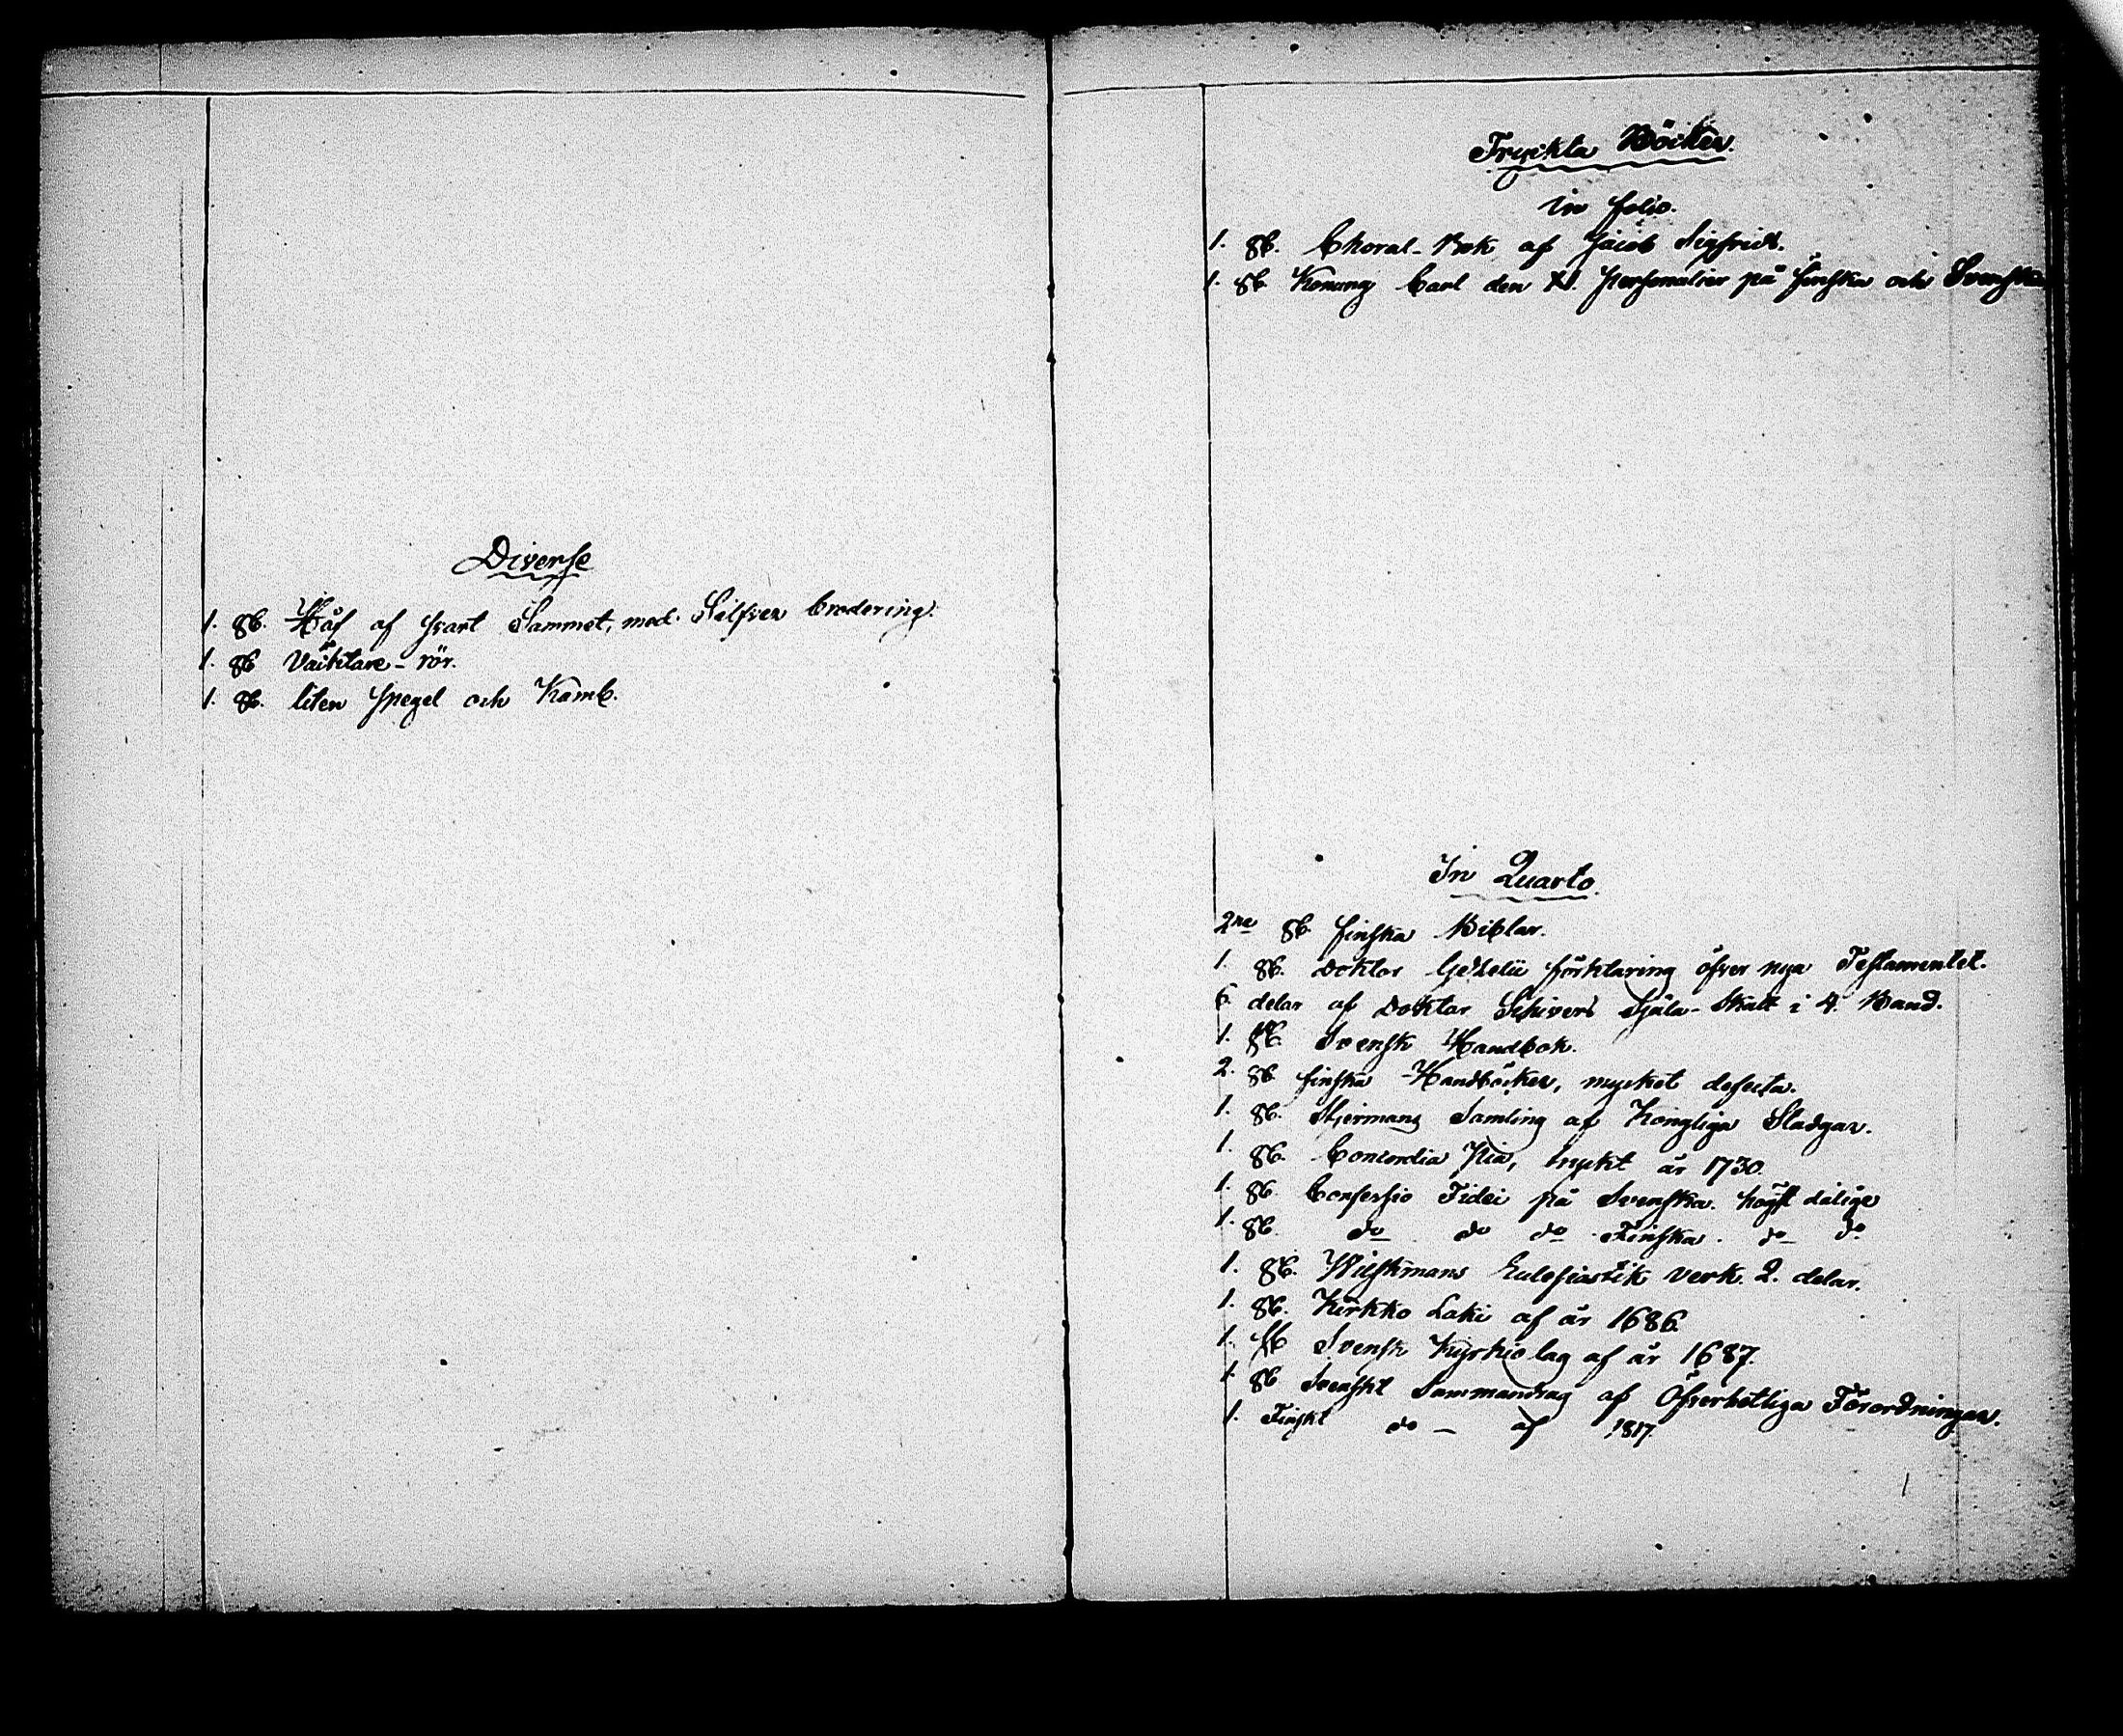 Diverse
1. st. Håf af svart Sammet, med Silfver brodering.
1. st Väcktare-rör.
1. st. liten spegel och Kamb.
Tryckta Böcker.
in folio.
1. st. Choral-Bok af Jacob Sigfrids.
1. st. Konung Carl den XI. personalier på finska och Svenska
In Quarto.
2ne st. finska Biblar.
1. st. Doktor Gezelii förklaring öfver nya Testamentet.
6 delar af Doktor Schivers Själa-Skatt i 4. Band.
1. st. Svensk Handbok.
2. st finska Handböcker, mycket defecta.
1. st. Stjermans Samling af Kongliga Stadgar.
1. st. Concordia Pia, tryckt år 1730.
1. st. Confessio Fidei på Svenska. högst dålige
1. st. do do do Finska. do do
1. st. Wilskmans Eclesiastik verk. 2. delar.
1. st. Kirkko Laki af år 1686.
1. st Svensk Kyrkio lag af år 1687.
1. st Svenskt Sammandrag af Öfverhetliga Förordningar.
1. Finskt do — af 1817.